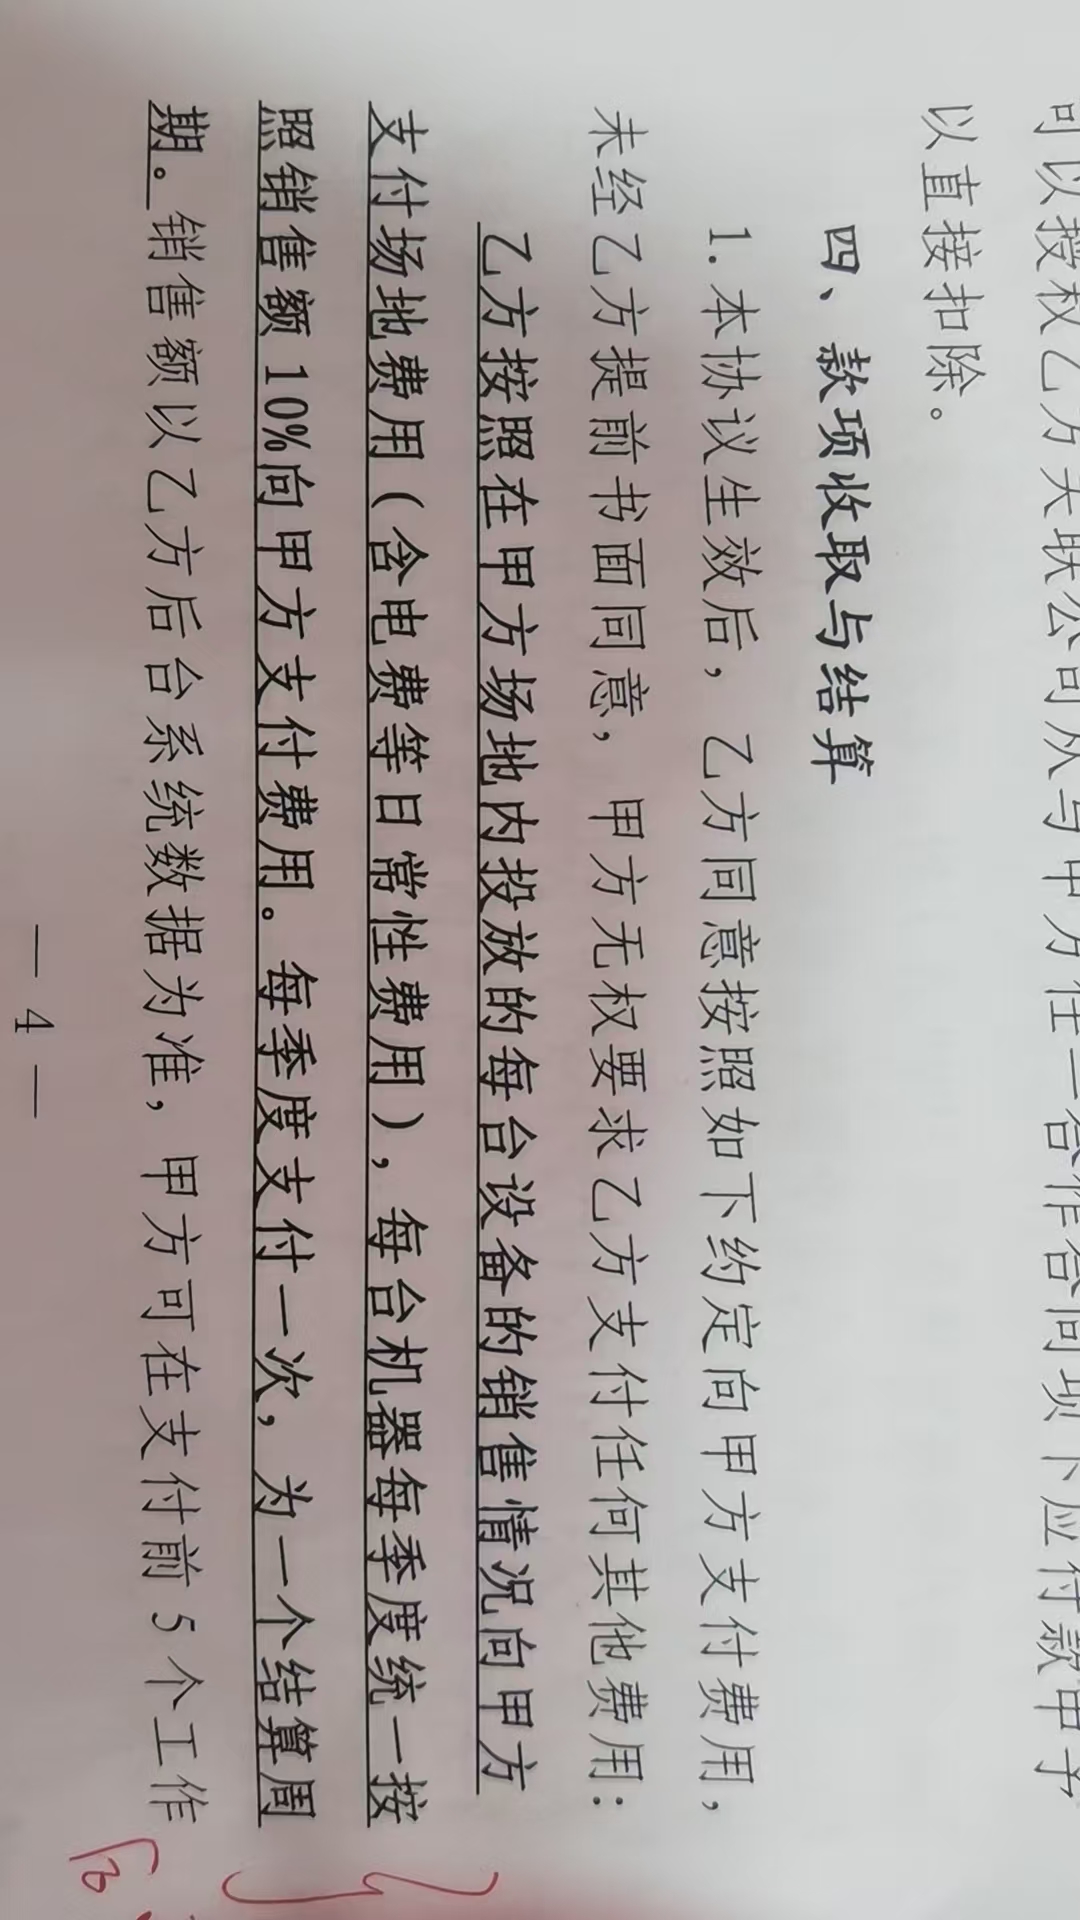 可以授权乙方关联公司从与甲方任一合作合同项下应付款中予
以直接扣除。
四、款项收取与结算
1.本协议生效后，乙方同意按照如下约定向甲方支付费用，
未经乙方提前书面同意，甲方无权要求乙方支付任何其他费用：
乙方按照在甲方场地内投放的每台设备的销售情况向甲方
支付场地费用（含电费等日常性费用），每台机器每季度统一按
照销售额10%向甲方支付费用。每季度支付一次，为一个结算周
期。销售额以乙方后台系统数据为准，甲方可在支付前5个工作
— 4 —